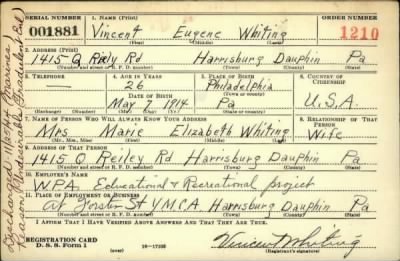 SERIAL NUMBER 1. NAME (Print) ORDER NUMBER
001881 Vincent Eugene Whiting 1210
(First) (Middle) (Last)
2. ADDRESS (Print)
1415 Q Rialy Rd Harrisburg Dauphin Pa
(Number and street or R. F. D. number) (Town) (County) (State)
3. TELEPHONE 4. AGE IN YEARS 5. PLACE OF BIRTH 6. COUNTRY OF CITIZENSHIP
— 26 Philadelphia
DATE OF BIRTH (Town or county)
May 7 1914 Pa U.S.A.
(Exchange) (Number) (Mo.) (Day) (Yr.) (State or country)
7. NAME OF PERSON WHO WILL ALWAYS KNOW YOUR ADDRESS 8. RELATIONSHIP OF THAT PERSON
Mrs Marie Elizabeth Whiting Wife
(Mr., Mrs., Miss) (First) (Middle) (Last)
9. ADDRESS OF THAT PERSON
1415 Q Reiley Rd Harrisburg Dauphin Pa
(Number and street or R. F. D. number) (Town) (County) (State)
10. EMPLOYER'S NAME
W.P.A. Educational & Recreational project
11. PLACE OF EMPLOYMENT OR BUSINESS
at Forster St YMCA Harrisburg Dauphin Pa
(Number and street or R. F. D. number) (Town) (County) (State)
I AFFIRM THAT I HAVE VERIFIED ABOVE ANSWERS AND THAT THEY ARE TRUE.
REGISTRATION CARD
D. S. S. Form 1 (over) 16—17105 Vincent Whiting
(Registrant's signature)